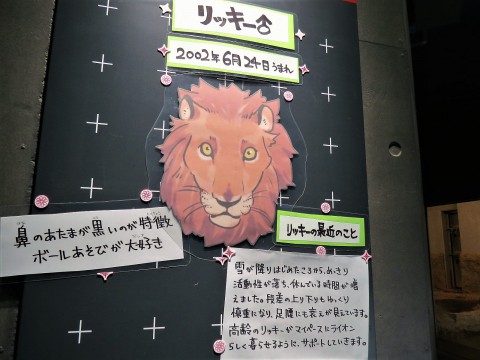 リッキー♂
2002年6月24日うまれ
鼻のあたまが黒いのが特徴
ボールあそびが大好き
リッキーの最近のこと
雪が降りはじめたころから、めっきり
活動性が落ち、休んでいる時間が増
えました。段差の上り下りもゆっくり
慎重になり、足腰にも衰えが見えています。
高齢のリッキーがマイペースにライオン
らしく暮らせるように、サポートしていきます。